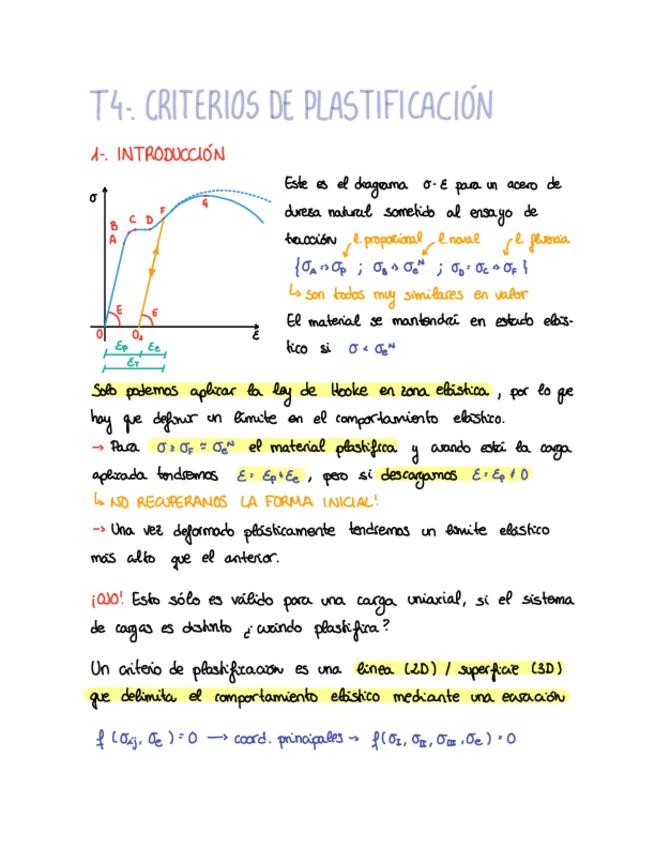 T4-. CRITERIOS DE PLASTIFICACIÓN
1-. INTRODUCCIÓN
σ
B
A
C
D
F
G
E
E
O
O₁
ε
εp
εe
εT
Este es el diagrama σ-ε para un acero de
dureza natural sometido al ensayo de
tracción
l. proporcional
l. noval
l. fluencia
{σA => σp ; σB => σeᴺ ; σD = σC => σF}
↳ son todas muy similares en valor
El material se mantendrá en estado elás-
tico si σ < σeᴺ
Solo podemos aplicar la ley de Hooke en zona elástica, por lo que
hay que definir un límite en el comportamiento elástico.
→ Para σ ≥ σF ≈ σeᴺ el material plastifica y cuando está la carga
aplicada tendremos ε = εp + εe, pero si descargamos ε = εp ≠ 0
↳ NO RECUPERAMOS LA FORMA INICIAL!
→ Una vez deformado plásticamente tendremos un límite elástico
más alto que el anterior.
¡OJO! Esto sólo es válido para una carga uniaxial, si el sistema
de cargas es distinto ¿cuándo plastifica?
Un criterio de plastificación es una línea (2D) / superficie (3D)
que delimita el comportamiento elástico mediante una ecuación
f (σij, σe) = 0 → coord. principales → f(σI, σII, σIII, σe) = 0